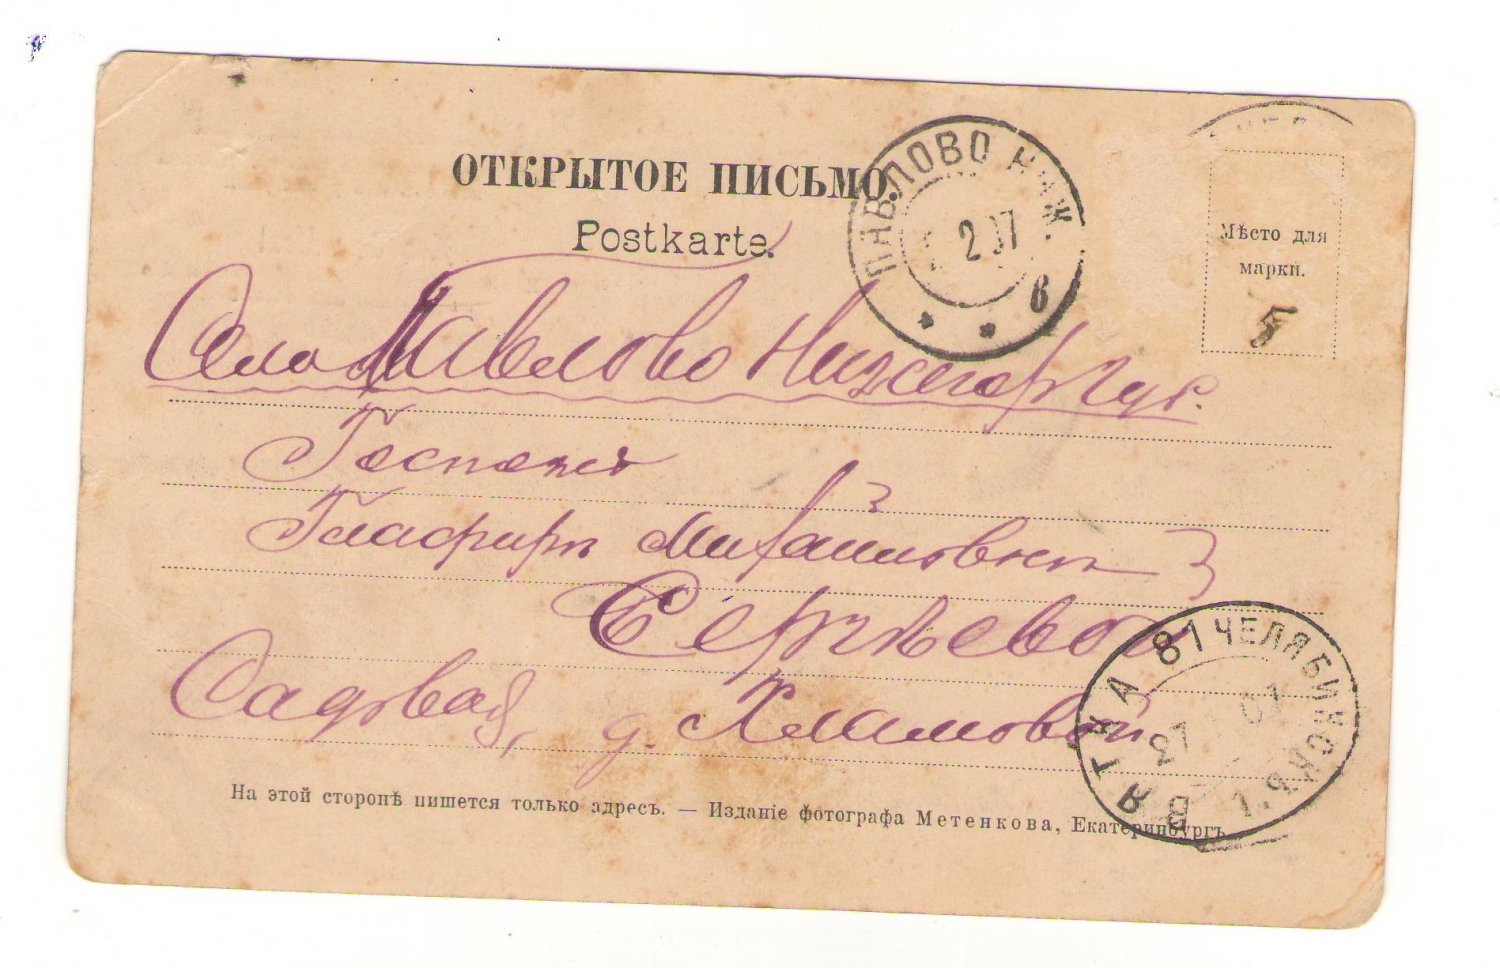 ОТКРЫТОЕ ПИСЬМО.
Postkarte.
ПАВЛОВО НИЖ.
2 07
в
Мѣсто для
марки.
5
Село Павлово Нижегор губ.
Госпожѣ
Глафирѣ Михайловнѣ
Сергѣевой
Садовая, д. Климовой
ВЯТКА 81 ЧЕЛЯБИНСКЪ
27 1 07
На этой сторонѣ пишется только адресъ. — Изданіе фотографа Метенкова, Екатеринбургъ